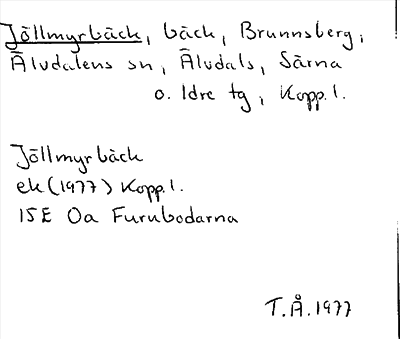 Jöllmyrbäck, bäck, Brunnsberg,
Älvdalens sn, Älvdals, Särna
o. Idre tg, Kopp.l.
Jöllmyrbäck
ek(1977) Kopp.l.
15E 0a Furubodarna
T.Å.1977